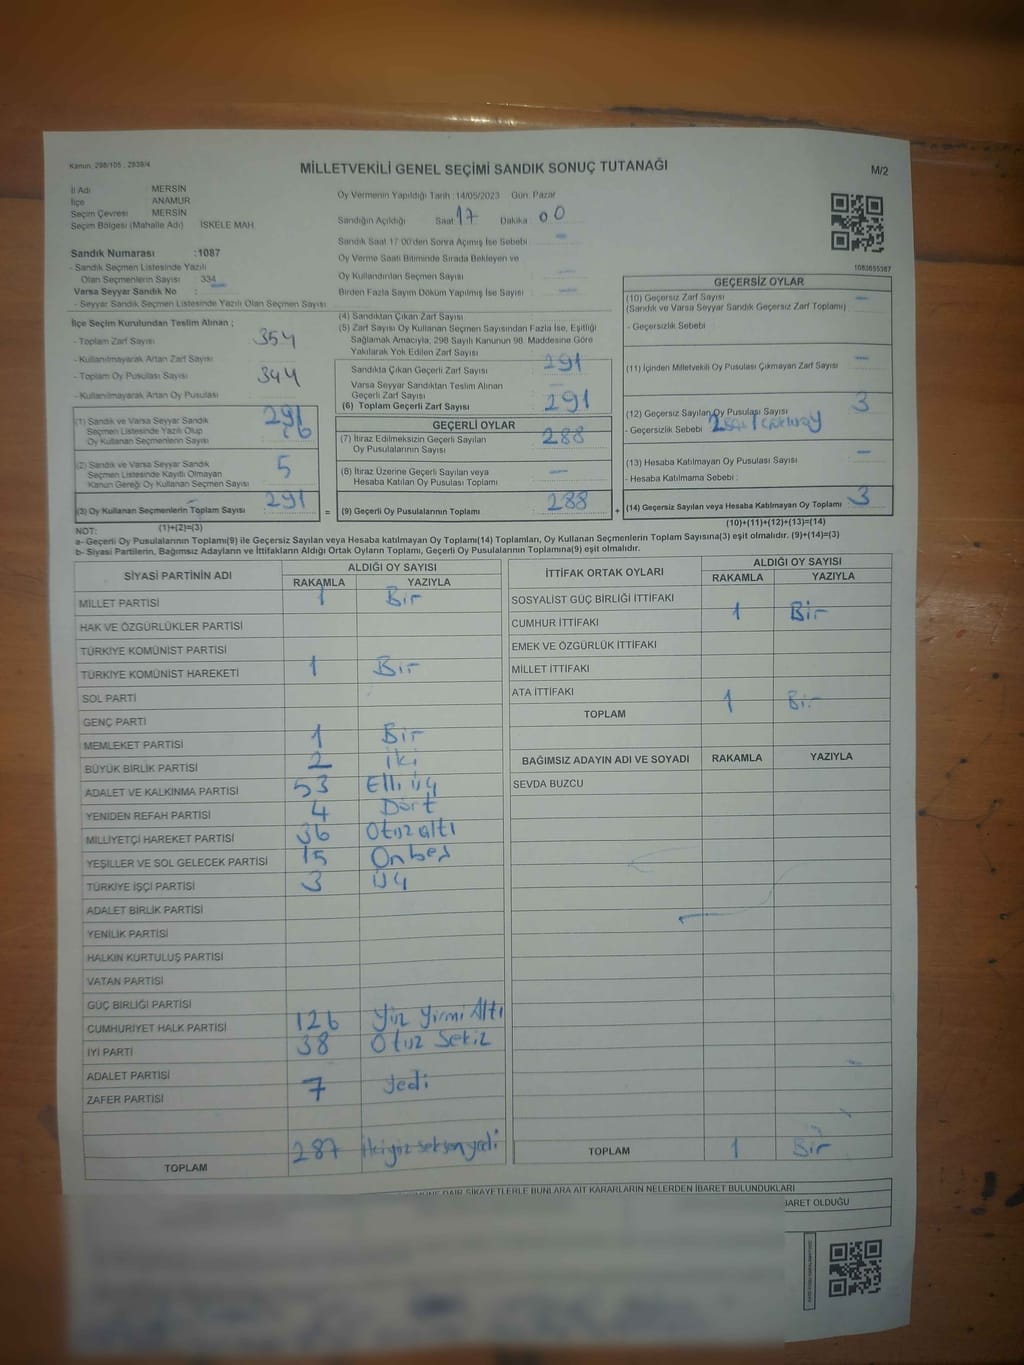 Kanun: 298/105 ; 2839/4
MİLLETVEKİLİ GENEL SEÇİMİ SANDIK SONUÇ TUTANAĞI
M/2
İl Adı MERSİN
İlçe ANAMUR
Seçim Çevresi MERSİN
Seçim Bölgesi (Mahalle Adı) İSKELE MAH
Sandık Numarası :1087
- Sandık Seçmen Listesinde Yazılı
Olan Seçmenlerin Sayısı : 334
Varsa Seyyar Sandık No :
- Seyyar Sandık Seçmen Listesinde Yazılı Olan Seçmen Sayısı :
Oy Vermenin Yapıldığı Tarih : 14/05/2023 Gün: Pazar
Sandığın Açıldığı Saat 17 Dakika 00
Sandık Saat 17:00'den Sonra Açılmış İse Sebebi : -
Oy Verme Saati Bitiminde Sırada Bekleyen ve
Oy Kullandırılan Seçmen Sayısı : -
Birden Fazla Sayım Döküm Yapılmış İse Sayısı : -
1083655387
İlçe Seçim Kurulundan Teslim Alınan ;
- Toplam Zarf Sayısı : 354
- Kullanılmayarak Artan Zarf Sayısı :
- Toplam Oy Pusulası Sayısı : 344
- Kullanılmayarak Artan Oy Pusulası :
(1) Sandık ve Varsa Seyyar Sandık
Seçmen Listesinde Yazılı Olup
Oy Kullanan Seçmenlerin Sayısı
(2) Sandık ve Varsa Seyyar Sandık
Seçmen Listesinde Kayıtlı Olmayan
Kanun Gereği Oy Kullanan Seçmen Sayısı 5
(3) Oy Kullanan Seçmenlerin Toplam Sayısı 291
(4) Sandıktan Çıkan Zarf Sayısı :
(5) Zarf Sayısı Oy Kullanan Seçmen Sayısından Fazla İse, Eşitliği
Sağlamak Amacıyla, 298 Sayılı Kanunun 98. Maddesine Göre
Yakılarak Yok Edilen Zarf Sayısı :
Sandıkta Çıkan Geçerli Zarf Sayısı : 291
Varsa Seyyar Sandıktan Teslim Alınan
Geçerli Zarf Sayısı : -
(6) Toplam Geçerli Zarf Sayısı : 291
GEÇERLİ OYLAR
(7) İtiraz Edilmeksizin Geçerli Sayılan
Oy Pusulalarının Sayısı : 288
(8) İtiraz Üzerine Geçerli Sayılan veya
Hesaba Katılan Oy Pusulası Toplamı : -
= (9) Geçerli Oy Pusulalarının Toplamı : 288 +
GEÇERSİZ OYLAR
(10) Geçersiz Zarf Sayısı : -
(Sandık ve Varsa Seyyar Sandık Geçersiz Zarf Toplamı)
- Geçersizlik Sebebi :
(11) İçinden Milletvekili Oy Pusulası Çıkmayan Zarf Sayısı : -
(12) Geçersiz Sayılan Oy Pusulası Sayısı : 3
- Geçersizlik Sebebi :
(13) Hesaba Katılmayan Oy Pusulası Sayısı : -
- Hesaba Katılmama Sebebi :
(14) Geçersiz Sayılan veya Hesaba Katılmayan Oy Toplamı : 3
NOT: (1)+(2)=(3) (10)+(11)+(12)+(13)=(14)
a- Geçerli Oy Pusulalarının Toplamı(9) ile Geçersiz Sayılan veya Hesaba katılmayan Oy Toplamı(14) Toplamları, Oy Kullanan Seçmenlerin Toplam Sayısına(3) eşit olmalıdır. (9)+(14)=(3)
b- Siyasi Partilerin, Bağımsız Adayların ve İttifakların Aldığı Ortak Oyların Toplamı, Geçerli Oy Pusulalarının Toplamına(9) eşit olmalıdır.
SİYASİ PARTİNİN ADI ALDIĞI OY SAYISI
RAKAMLA YAZIYLA
MİLLET PARTİSİ 1 Bir
HAK VE ÖZGÜRLÜKLER PARTİSİ
TÜRKİYE KOMÜNİST PARTİSİ
TÜRKİYE KOMÜNİST HAREKETİ 1 Bir
SOL PARTİ
GENÇ PARTİ
MEMLEKET PARTİSİ 1 Bir
BÜYÜK BİRLİK PARTİSİ 2 İki
ADALET VE KALKINMA PARTİSİ 53 Elli üç
YENİDEN REFAH PARTİSİ 4 Dört
MİLLİYETÇİ HAREKET PARTİSİ 36 Otuz altı
YEŞİLLER VE SOL GELECEK PARTİSİ 15 Onbeş
TÜRKİYE İŞÇİ PARTİSİ 3 Üç
ADALET BİRLİK PARTİSİ
YENİLİK PARTİSİ
HALKIN KURTULUŞ PARTİSİ
VATAN PARTİSİ
GÜÇ BİRLİĞİ PARTİSİ
CUMHURİYET HALK PARTİSİ 126 Yüz Yirmi Altı
İYİ PARTİ 38 Otuz Sekiz
ADALET PARTİSİ
ZAFER PARTİSİ 7 Yedi
TOPLAM 287 İkiyüz seksen yedi
İTTİFAK ORTAK OYLARI ALDIĞI OY SAYISI
RAKAMLA YAZIYLA
SOSYALİST GÜÇ BİRLİĞİ İTTİFAKI
CUMHUR İTTİFAKI 1 Bir
EMEK VE ÖZGÜRLÜK İTTİFAKI
MİLLET İTTİFAKI
ATA İTTİFAKI
TOPLAM 1 Bir
BAĞIMSIZ ADAYIN ADI VE SOYADI RAKAMLA YAZIYLA
SEVDA BUZCU
TOPLAM 1 Bir
DAİR ŞİKAYETLERLE BUNLARA AİT KARARLARIN NELERDEN İBARET BULUNDUKLARI
İBARET OLDUĞU